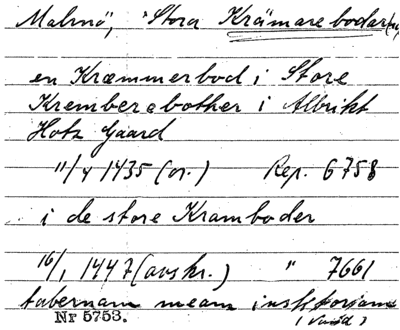 Malmö, Stora Krämarebodar(na)
en Kræmmerbod i Store
Kremberebother i Albrikt
Hotz Gaard
11/4 1435 (or.) Rep. 6758
i de store Kramboder
16/1 1447 (avskr.) " 7661
tabernam meam
Nr 5753.